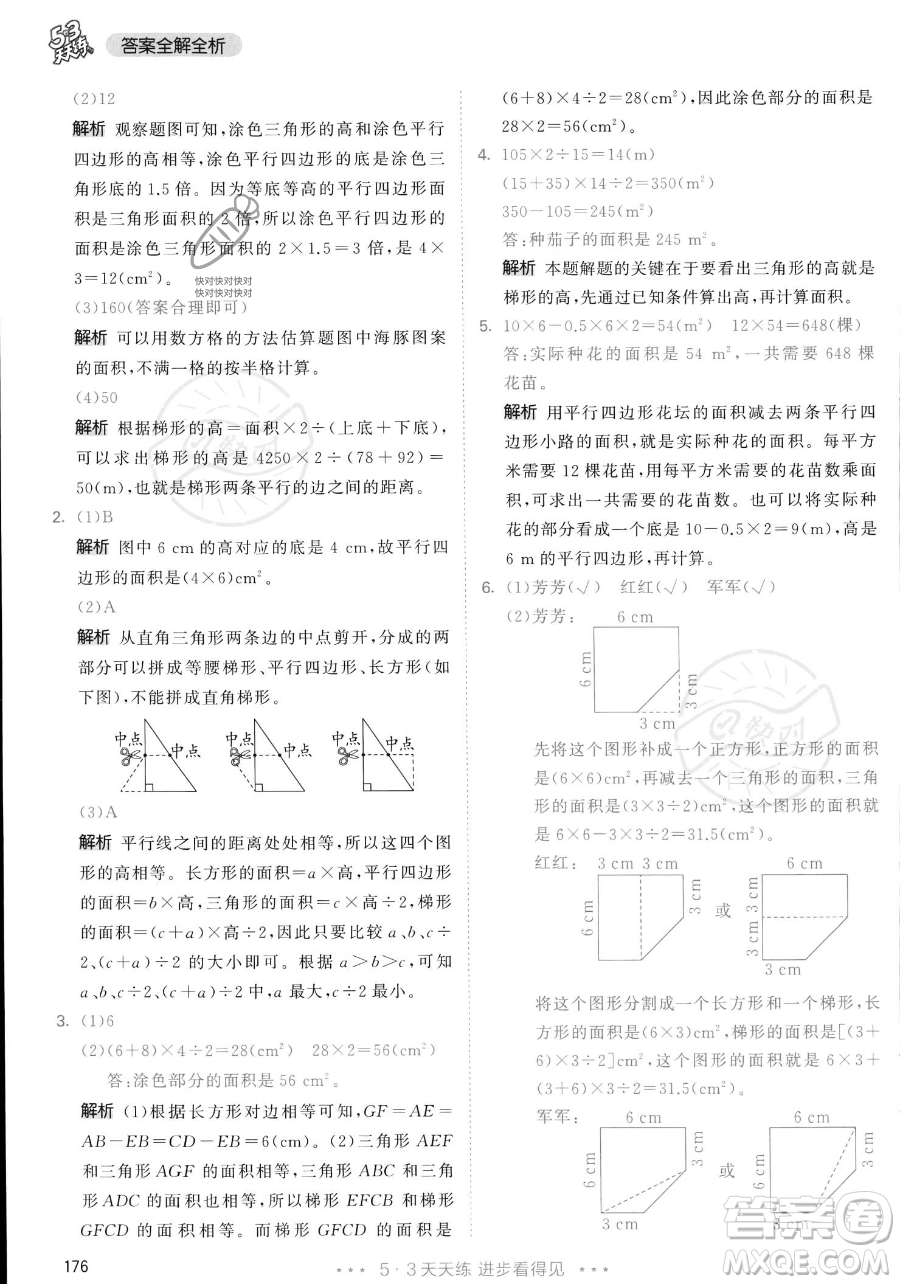 5·3
天天练
答案全解全析
(2)12
解析 观察题图可知,涂色三角形的高和涂色平行
四边形的高相等,涂色平行四边形的底是涂色三
角形底的 1.5 倍。因为等底等高的平行四边形面
积是三角形面积的 2 倍,所以涂色平行四边形的
面积是涂色三角形面积的 2×1.5=3 倍,是 4×
3=12(cm²)。
快对快对快对
快对快对快对
(3)160(答案合理即可)
解析 可以用数方格的方法估算题图中海豚图案
的面积,不满一格的按半格计算。
(4)50
解析 根据梯形的高=面积×2÷(上底+下底),
可以求出梯形的高是 4250×2÷(78+92)=
50(m),也是梯形两条平行的边之间的距离。
2. (1)B
解析 图中 6 cm 的高对应的底是 4 cm,故平行四
边形的面积是(4×6)cm²。
(2)A
解析 从直角三角形两条边的中点剪开,分成的两
部分可以拼成等腰梯形、平行四边形、长方形(如
下图),不能拼成直角梯形。
中点 中点 中点 中点 中点 中点
(3)A
解析 平行线之间的距离处处相等,所以这四个图
形的高相等。长方形的面积=a×高,平行四边形
的面积=b×高,三角形的面积=c×高÷2,梯形
的面积=(c+a)×高÷2,因此只要比较 a、b、c÷
2、(c+a)÷2 的大小即可。因为 a>b>c,可知
a、b、c÷2、(c+a)÷2 中,a 最大,故长方形的面
积最大。
3. (1)6
(2)(6+8)×4÷2=28(cm²) 28×2=56(cm²)
答:涂色部分的面积是 56 cm²。
解析 (1)根据长方形对边相等可知,GF=AE=
AB-EB=CD-EB=6(cm)。(2)三角形 AEF
和三角形 AGF 的面积相等,三角形 ABC 和三角
形 ADC 的面积相等,所以梯形 EFCB 和梯形
GFCD 的面积相等。而梯形 GFCD 的面积是
(6+8)×4÷2=28(cm²),因此涂色部分的面积是
28×2=56(cm²)。
4. 105×2÷15=14(m)
(15+35)×14÷2=350(m²)
350-105=245(m²)
答:种茄子的面积是 245 m²。
解析 本题解题的关键在于要看出三角形的高就是
梯形的高,先根据已知条件算出高,再计算面积。
5. 10×6-0.5×6×2=54(m²) 12×54=648(棵)
答:实际种花的面积是 54 m²,一共需要 648 棵
花苗。
解析 用平行四边形花坛的面积减去两条平行四
边形小路的面积,就是实际种花的面积。每平方
米需要 12 棵花苗,用每平方米花苗数乘面
积,可以求出一共需要的花苗数。也可以将实际种
花的部分看成一个底是 10-0.5×2=9(m),高是
6 m 的平行四边形,再计算。
6. (1)芳芳(√) 红红(√) 军军(√)
(2)芳芳:
6 cm
6 cm
3 cm
3 cm
先将这个图形补成一个正方形,正方形的面积
是(6×6)cm²,再减去一个三角形的面积,三角
形的面积是(3×3÷2)cm²,这个图形的面积就
是 6×6-3×3÷2=31.5(cm²)。
红红:
3 cm 3 cm
6 cm
3 cm
或
6 cm
3 cm 3 cm
3 cm
3 cm
将这个图形分割成一个长方形和一个梯形,长方
形的面积是(6×3)cm²,梯形的面积是[(3+
6)×3÷2]cm²,这个图形的面积就是 6×3+
(3+6)×3÷2=31.5(cm²)。
军军:
6 cm
6 cm
3 cm
3 cm
或
6 cm
6 cm
3 cm
3 cm
176
5·3 天天练 进步看得见
答案圈
MXQE.COM